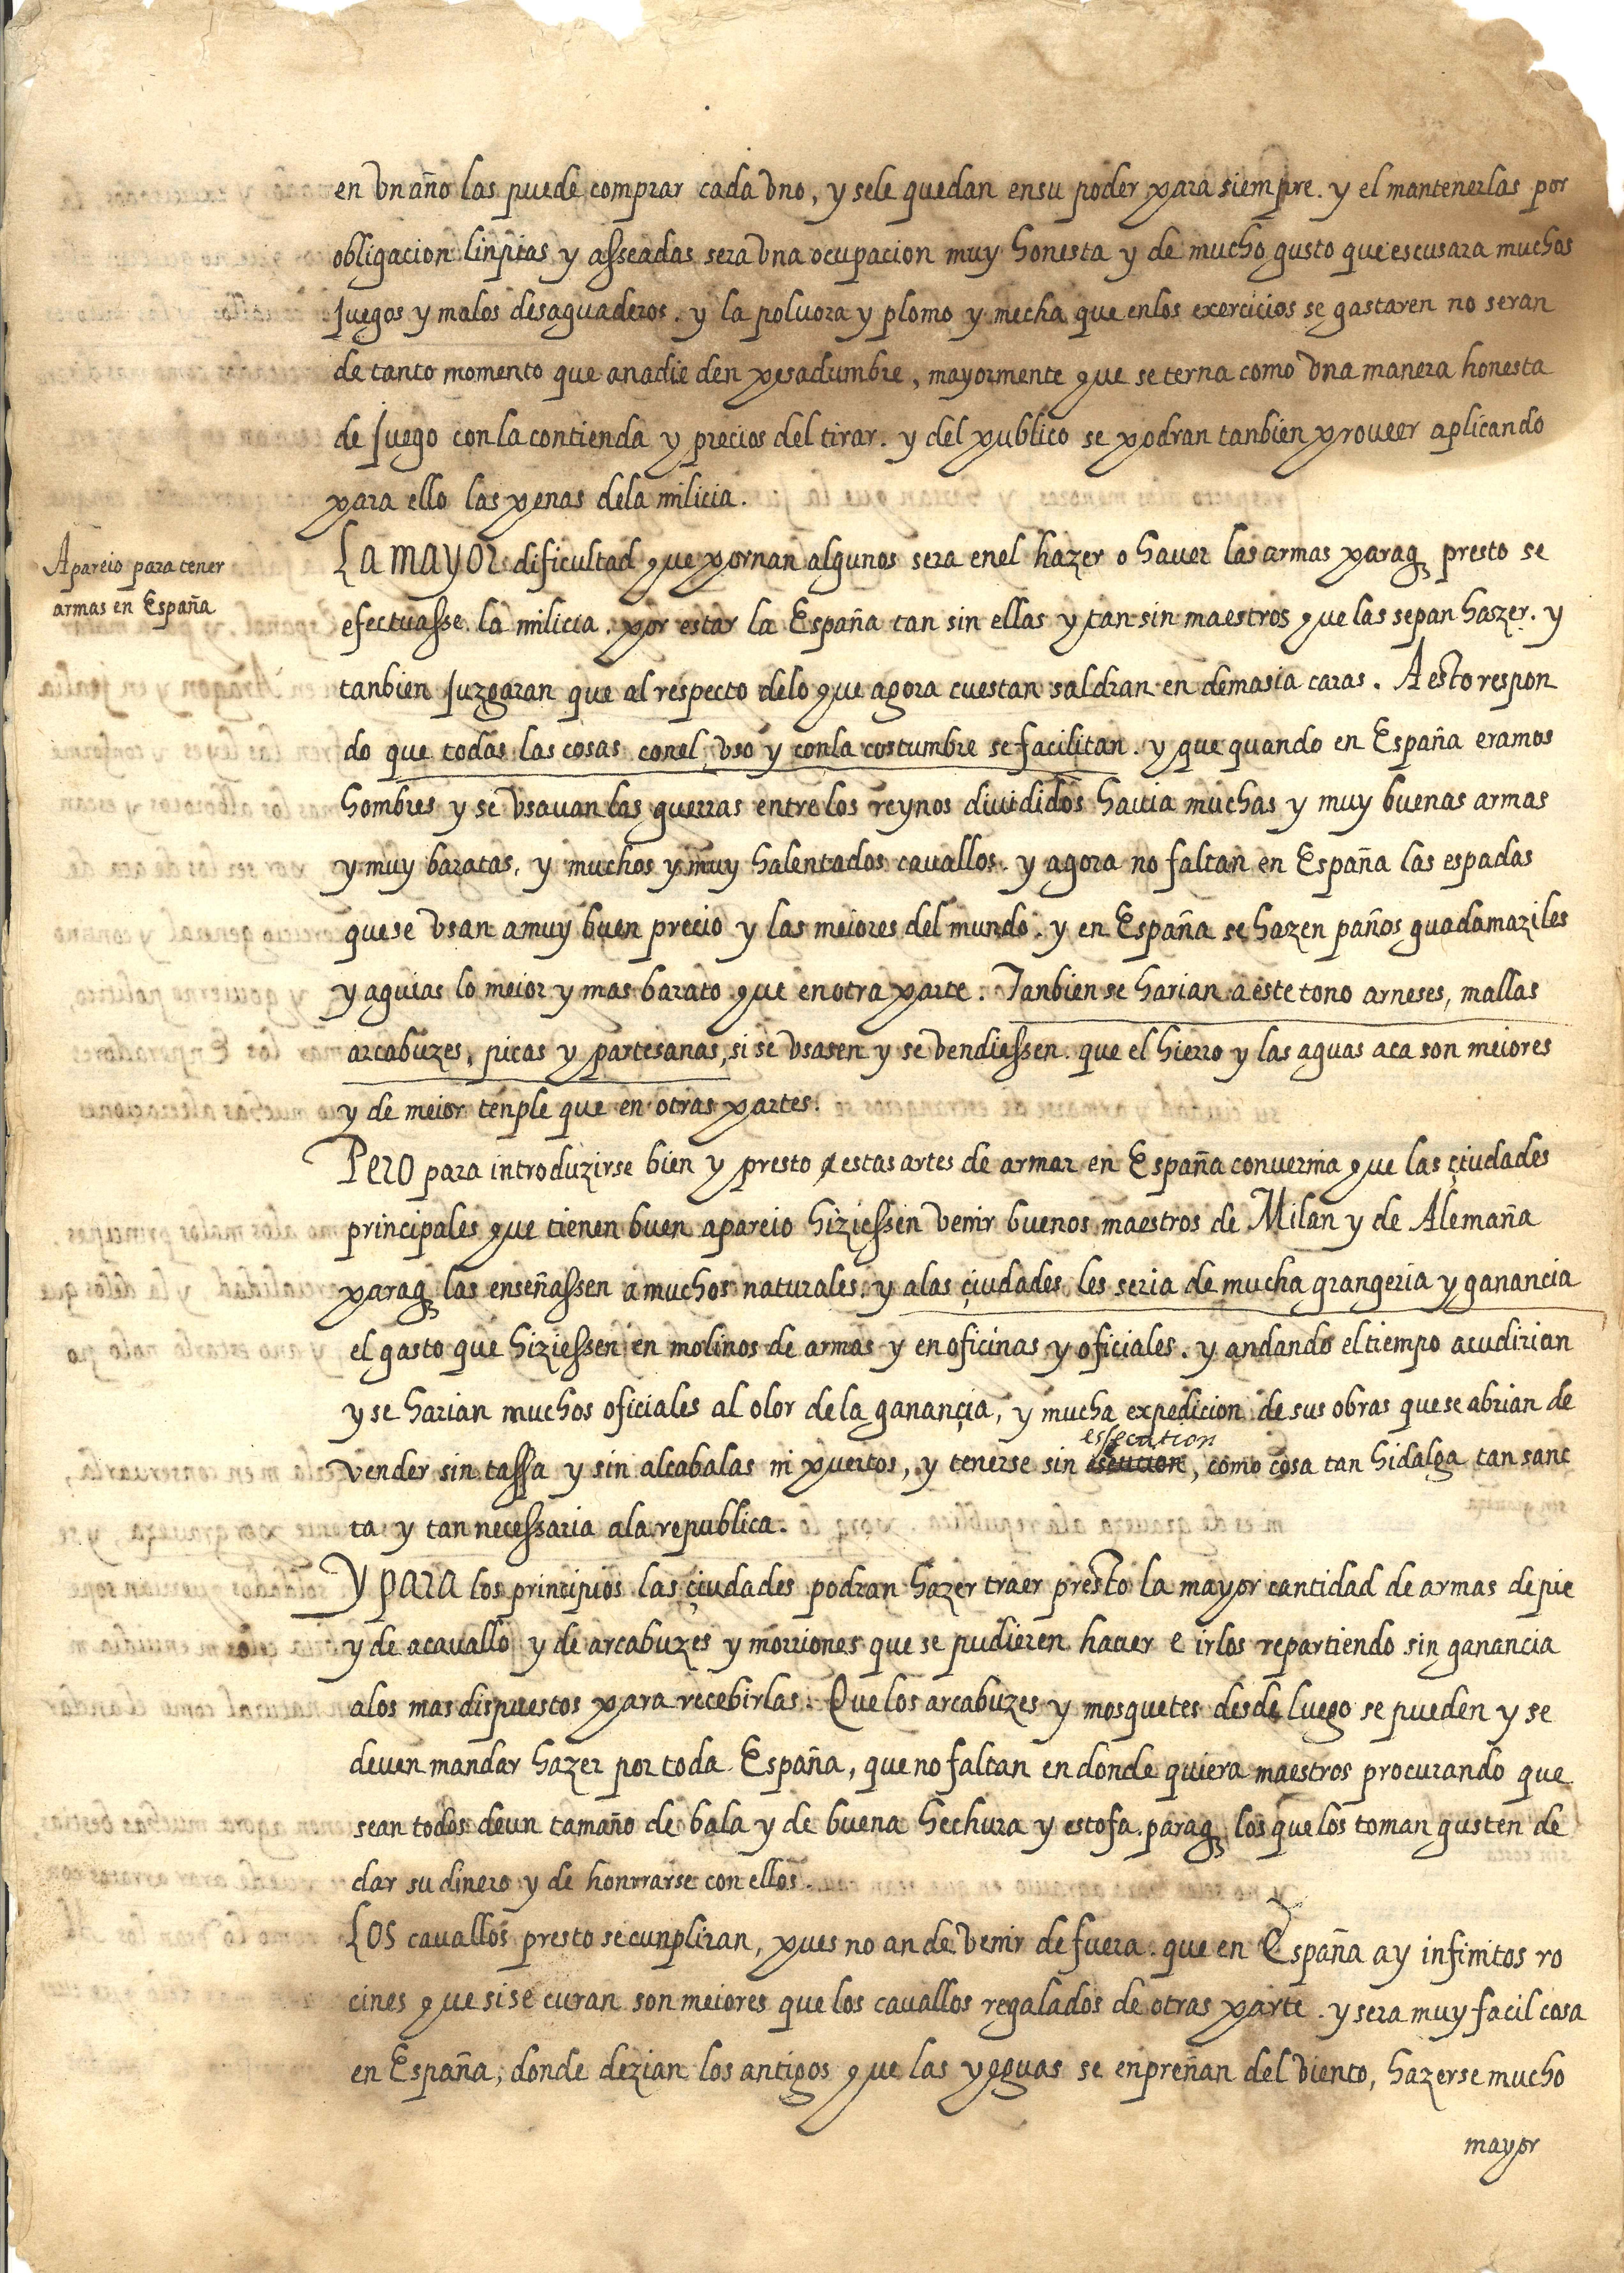 en vn año las puede comprar cada vno, y sele quedan ensu poder para siempre. y el mantenerlas por
obligacion linpias y asseadas sera vna ocupacion muy honesta y de mucho gusto que escusara muchos
juegos y malos desaguaderos. y la poluora y plomo y mecha que enlos exercicios se gastaren no seran
de tanto momento que anadie den pesadumbre, mayormente que se terna como vna manera honesta
de juego con la contienda y precios del tirar. y del publico se podran tanbien proueer aplicando
para ello las penas dela milicia.
Apareio para tener
armas en España
La mayor dificultad que pornan algunos sera enel hazer o hauer las armas paraq presto se
efectuasse la milicia. por estar la España tan sin ellas y tan sin maestros que las sepan hazer. y
tanbien juzgaran que al respecto delo que agora cuestan saldran en demasia caras. A esto respon
do que todas las cosas conel vso y conla costumbre se facilitan. y que quando en España eramos
hombres y se vsauan las guerras entre los reynos diuididos hauia muchas y muy buenas armas
y muy baratas, y muchos y muy halentados cauallos. y agora no faltan en España las espadas
que se vsan a muy buen precio y las meiores del mundo. y en España se hazen paños guadamaziles
y aguias lo meior y mas barato que en otra parte. Tanbien se harian a este tono arneses, mallas
arcabuzes, picas y partesanas, si se vsasen y se vendiessen. que el hierro y las aguas aca son meiores
y de meior tenple que en otras partes.
Pero para introduzirse bien y presto estas artes de armar en España conuernia que las çiudades
principales que tienen buen apareio hiziessen venir buenos maestros de Milan y de Alemaña
paraq las enseñassen a muchos naturales. y alas çiudades les seria de mucha grangeria y ganancia
el gasto que hiziessen en molinos de armas y en oficinas y oficiales. y andando el tiempo acudirian
y se harian muchos oficiales al olor de la ganançia, y mucha expedicion de sus obras que se abrian de
essecution
vender sin tassa y sin alcabalas ni puertos, y tenerse sin , como cosa tan hidalga tan sanc
ta y tan necessaria ala republica.
Y para los principios las çiudades podran hazer traer presto la mayor cantidad de armas de pie
y de acauallo y de arcabuzes y morriones que se pudieren hauer e irlos repartiendo sin ganancia
alos mas dispuestos para recebirlas. Que los arcabuzes y mosquetes desde luego se pueden y se
deuen mandar hazer por toda España, que no faltan en donde quiera maestros procurando que
sean todos deun tamaño de bala y de buena hechura y estofa. paraq los que los toman gusten de
dar su dinero y de honrrarse con ellos.
Los cauallos presto se cunpliran, pues no an de venir de fuera. que en España ay infinitos ro
cines que si se curan son meiores que los cauallos regalados de otras parte. y sera muy facil cosa
en España, donde dezian los antigos que las yeguas se enpreñan del viento, hazerse mucho
mayor